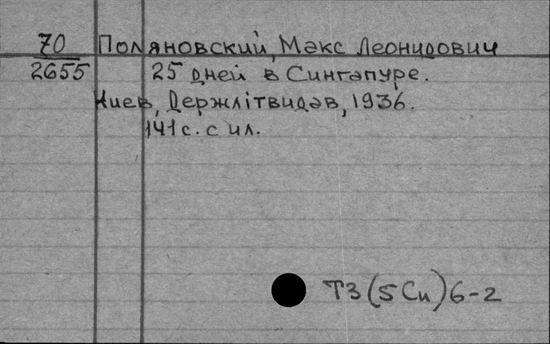 70 Поляновский, Макс Леонидович
2655 25 дней в Сингапуре.
Киев, Держлiтвидав, 1936.
141 с. с ил.
Т3(5Си)6-2